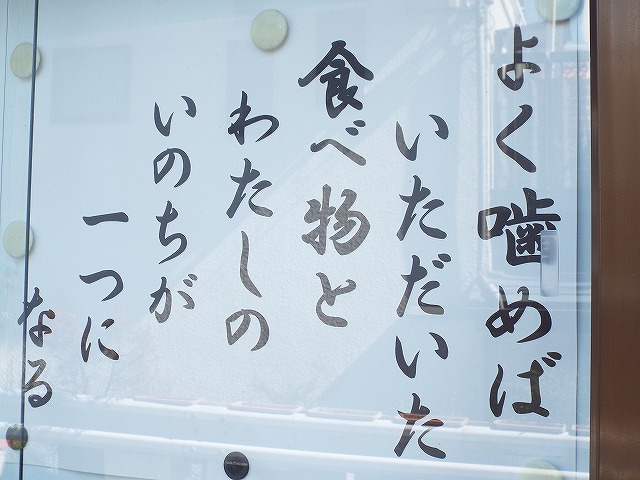 よく噛めば
いただいた
食べ物と
わたしの
いのちが
一つに
なる